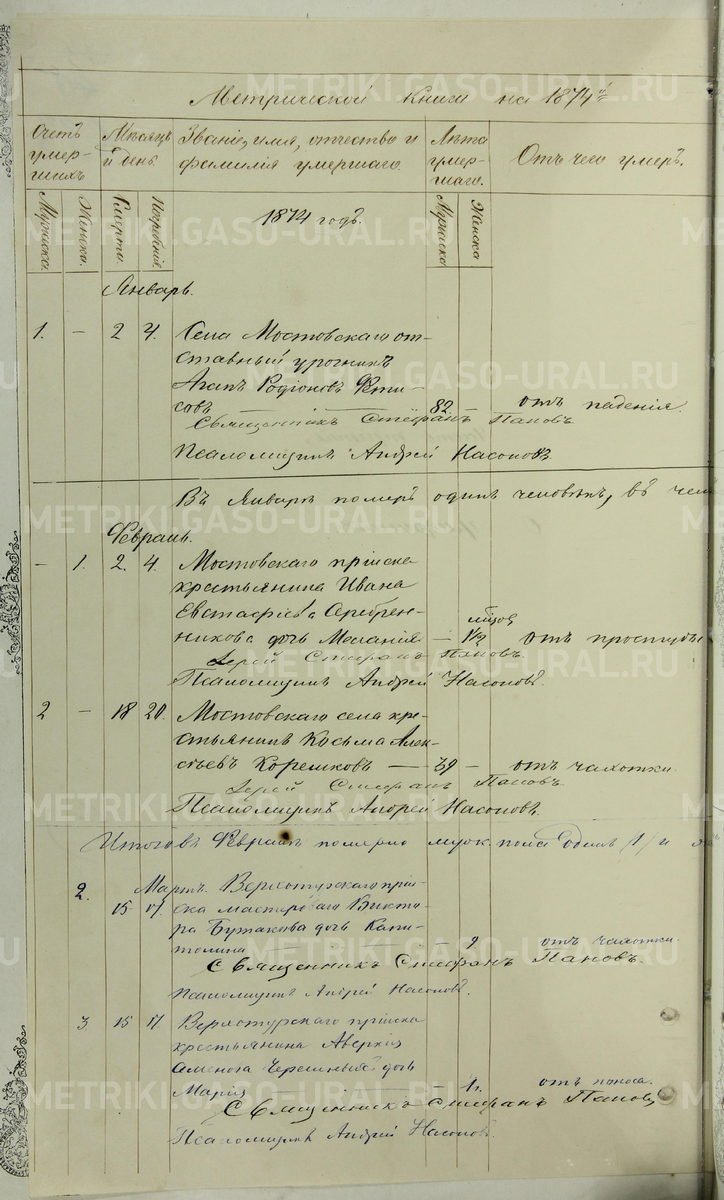 Метрической книги на 1874й
Счетъ умер- шихъ
Мѣсяцъ и день
Званіе, имя, отчество и фамилія умершаго.
Лѣта умер- шаго.
Отъ чего умеръ.
Мужеска. Женска. Смерти. Погребенія. Мужеска Женска
1874 годъ.
Январь.
1. – 2 4. Села Мостовскаго от-
ставный урочникъ
Агапъ Родіоновъ Фети-
совъ 82 – отъ паденія.
Священникъ Стефанъ Пановъ.
Псаломщикъ Андрей Насоновъ.
Въ Январѣ померъ одинъ человѣкъ, въ чем
Февраль.
– 1. 2. 4. Мостовскаго пріиска
крестьянина Ивана
Евстафіева Серебрен-
мѣсяц
никова дочь Меланія – 1½ отъ простуды
Іерей Стефанъ Пановъ.
Псаломщикъ Андрей Насоновъ.
2 – 18 20. Мостовскаго села кре-
стьянинъ Косьма Алек-
сѣевъ Корешковъ – 39 – отъ чахотки.
Іерей Стефанъ Пановъ.
Псаломщикъ Андрей Насоновъ.
Итого въ Февралѣ померло муж. пола Одинъ /1/ и
Мартъ. Верхотурскаго прі-
2. 15 17. ска мастероваго Викто-
ра Бутакова дочь Капи-
толина – 2 отъ чахотки.
Священникъ Стефанъ Пановъ.
Псаломщикъ Андрей Насоновъ.
3 15 17 Верхотурскаго пріиска
крестьянина Аверкія
дочь
Марія – 1. отъ поноса.
Священникъ Стефанъ Пановъ
Псаломщикъ Андрей Насоновъ.
METRIKI.GASO-URAL.RU